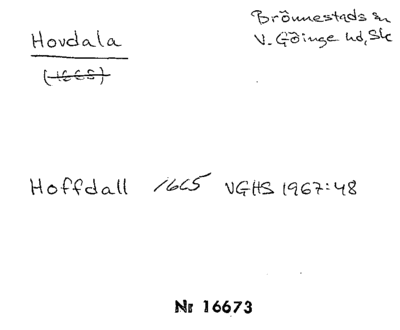 Hovdala
Brönnestads sn
V. Göinge hd, Sk
(1665)
Hoffdall 1665 VGHS 1967:48
Nr 16673